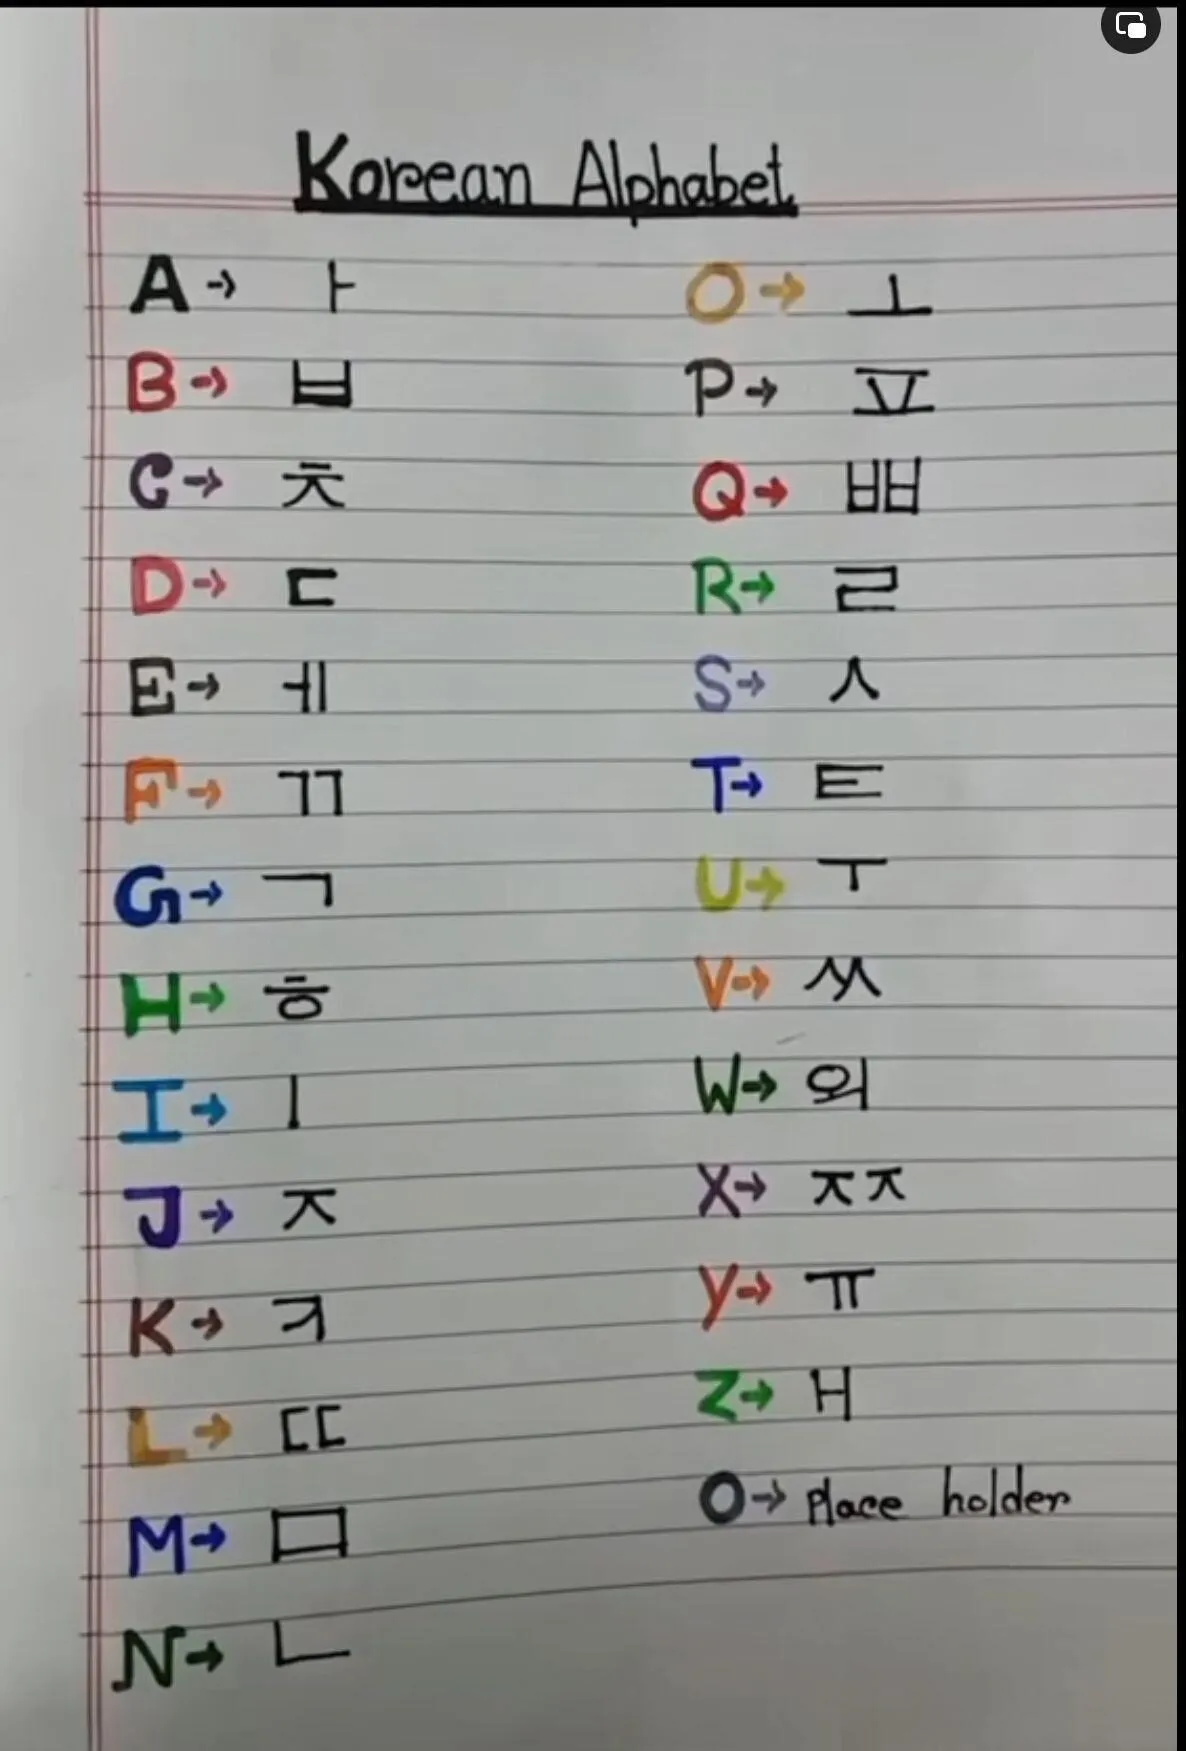 Korean Alphabet
A → ㅏ
B → ㅂ
C → ㅊ
D → ㄷ
E → ㅔ
F → ㄲ
G → ㄱ
H → ㅎ
I → ㅣ
J → ㅈ
K → ㅋ
L → ㄸ
M → ㅁ
N → ㄴ
O → ㅗ
P → ㅍ
Q → ㅃ
R → ㄹ
S → ㅅ
T → ㅌ
U → ㅜ
V → ㅆ
W → 외
X → ㅈㅈ
Y → ㅠ
Z → ㅐ
O → Place holder